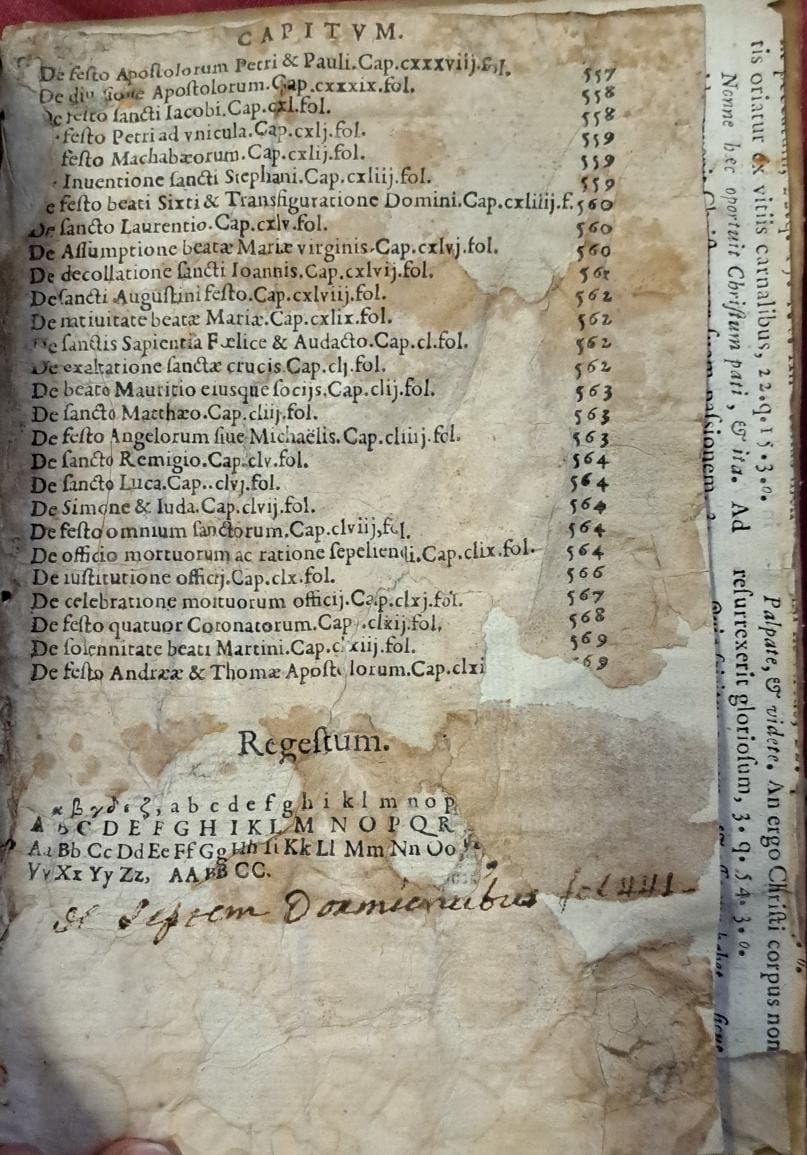 CAPITVM.
De festo Apostolorum Petri & Pauli.Cap.cxxxviij.fol. 557
De Apostolorum.Cap.cxxxix.fol. 558
festo sancti Iacobi.Cap.cxl.fol. 558
festo Petri ad vnicula.Cap.cxlj.fol. 559
festo Machabæorum.Cap.cxlij.fol. 559
Inuentione sancti Stephani.Cap.cxliij.fol. 559
e festo beati Sixti & Transfiguratione Domini.Cap.cxliiij.f. 560
De sancto Laurentio.Cap.cxlv.fol. 560
De Assumptione beatæ Mariæ virginis.Cap.cxlvj.fol. 560
De decollatione sancti Ioannis.Cap.cxlvij.fol. 561
De sancti Augustini festo.Cap.cxlviij.fol. 562
De natiuitate beatæ Mariæ.Cap.cxlix.fol. 562
De sanctis Sapientia Fælice & Audacto.Cap.cl.fol. 562
De exaltatione sanctæ crucis.Cap.clj.fol. 562
De beato Mauritio eiusque socijs.Cap.clij.fol. 563
De sancto Matthæo.Cap.cliij.fol. 563
De festo Angelorum siue Michaëlis.Cap.cliiij.fol. 563
De sancto Remigio.Cap.clv.fol. 564
De sancto Luca.Cap..clvj.fol. 564
De Simone & Iuda.Cap.clvij.fol. 564
De festo omnium sanctorum.Cap.clviij.fol. 564
De officio mortuorum ac ratione sepeliendi.Cap.clix.fol. 564
De institutione officij.Cap.clx.fol. 566
De celebratione mortuorum officij.Cap.clxj.fol. 567
De festo quatuor Coronatorum.Cap.clxij.fol. 568
De solennitate beati Martini.Cap.c xiij.fol. 569
De festo Andrææ & Thomæ Apost lorum.Cap.clxi 69
Regestum.
α β γ δ ε ζ, a b c d e f g h i k l m n o p
A B C D E F G H I K L M N O P Q R
Aa Bb Cc Dd Ee Ff Gg Hh Ii Kk Ll Mm Nn Oo
Vv Xx Yy Zz, AA BB CC.
Septem Dormientibus fol 441
tis oriatur ex vitiis carnalibus, 22.q.15.3.0.
Nonne hec oportuit Christum pati, & ita. Ad
resurrexerit gloriosum, 3.q.54.3.0.
Palpate, & videte. An ergo Christi corpus non